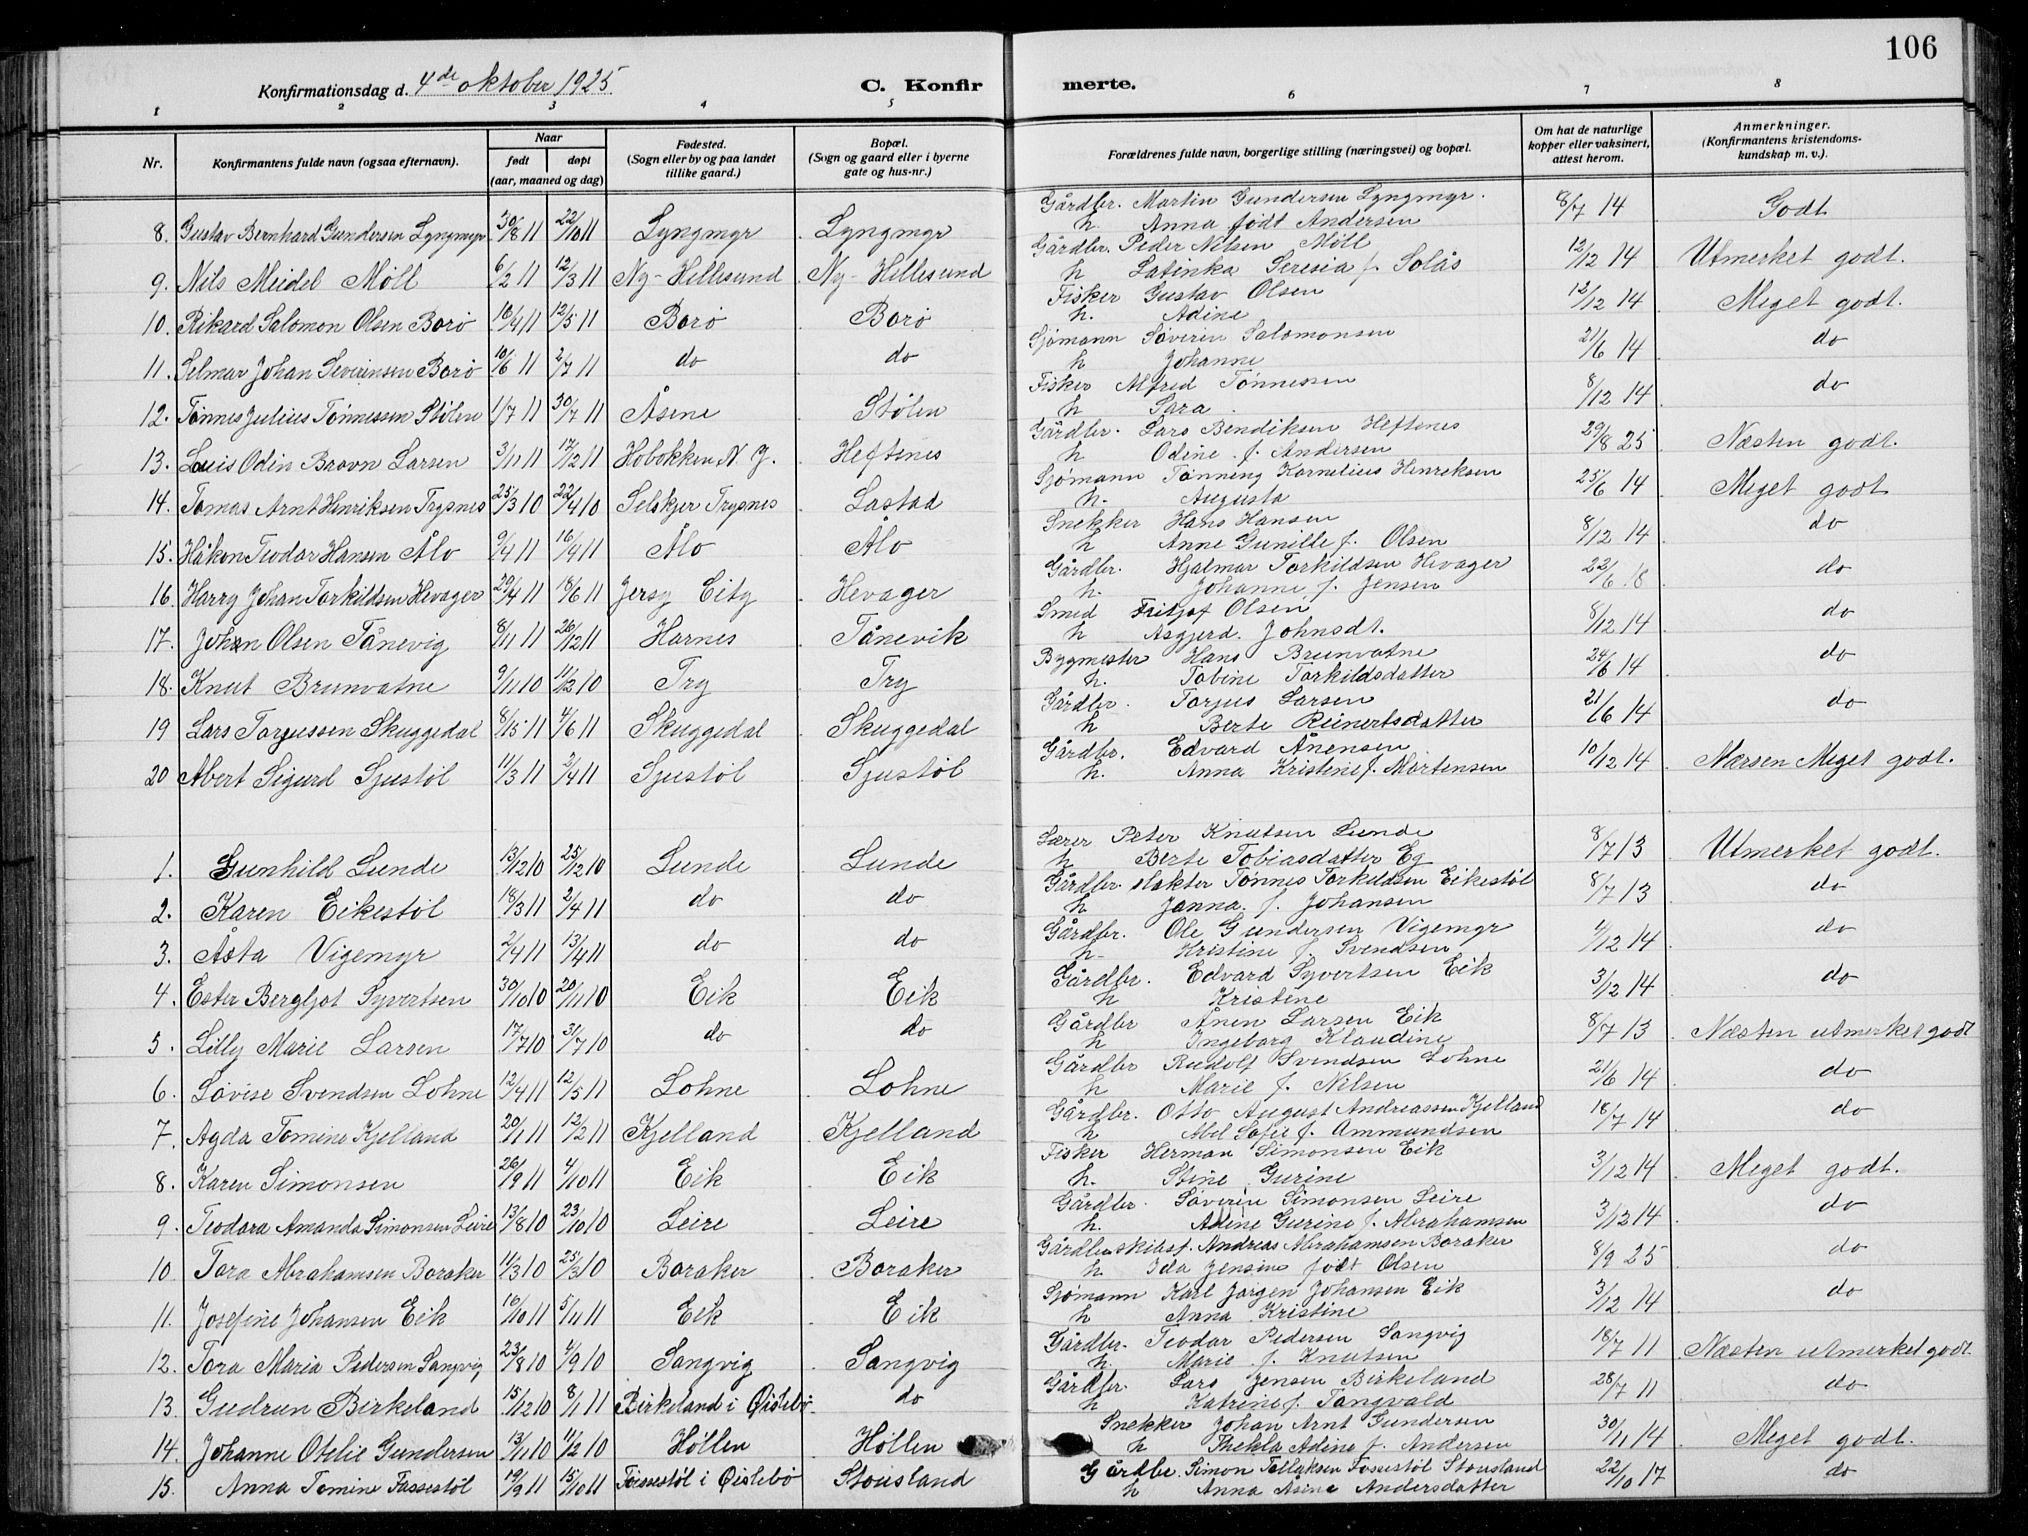 106
Konfirmationsdag d. 4de oktober 1925. C. Konfir merte.
1 2 3 4 5 6 7 8
Nr. Konfirmantens fulde navn (ogsaa efternavn). Naar født døpt (aar, maaned og dag) Fødested. (Sogn eller by og paa landet tillike gaard.) Bopæl. (Sogn og gaard eller i byerne gate og hus-nr.) Forældrenes fulde navn, borgerlige stilling (næringsvei) og bopæl. Om hat de naturlige kopper eller vaksinert, attest herom. Anmerkninger. (Konfirmantens kristendoms-kundskap m. v.).
8. Gustav Bernhard Gundersen Lyngmyr 30/8 11 22/10 11 Lyngmyr Lyngmyr Gårdbr. Martin Gundersen Lyngmyr. 8/7 14 Godt
h. Anna født Andersen
9. Nils Meidel Möll 6/2 11 12/3 11 Ny-Hellesund Ny-Hellesund Gårdbr. Peder Nilsen Möll 12/12 14 Utmerket godt.
h Latinka Seresia f. Solås
10. Rikard Salomon Olsen Borö 16/4 11 12/5 11 Borö Borö Fisker Gustav Olsen 12/12 14 Meget godt.
h. Adine
11. Selmar Johan Severinsen Borö 10/6 11 2/7 11 do do Sjömann Söverin Salomonsen 21/6 14 do
h Johanne
12. Tönnes Julius Tönnessen Stölen 1/7 11 30/7 11 Åsene Stölen Fisker Alfred Tönnessen 8/12 14 do
h Sara
13. Luis Odin Brovn Larsen 3/11 11 17/12 11 Hobokken N. J. Heftenes Gårdbr. Lars Bendiksen Heftenes 29/8 25 Næsten godt.
h Odine f. Andersen
14. Tomas Arnt Henriksen Trysnes 25/3 10 22/4 10 Selskjer Trysnes Lastad Sjömann Tönning Kornelius Henriksen 25/6 14 Meget godt
h. Augusta
15. Håkon Teodor Hansen Ålo 9/4 11 16/4 11 Ålo Ålo Snekker Hans Hansen 8/12 14 do
h Anne Gunille f. Olsen
16. Harry Johan Torkildsen Hevager 29/4 11 18/6 11 Jersy City Hevager Gårdbr. Hjalmar Torkildsen Hevager 22/6 18 do
h. Johanne f. Jensen
17. Johan Olsen Tånevig 8/11 11 26/12 11 Harnes Tånevik Smed Fritjof Olsen 8/12 14 do
h Asgjerd. Johnsdt.
18. Knut Brunvatne 9/11 10 11/12 10 Try Try Bygmester Hans Brunvatne 24/6 14 do
h. Tobine Torkildsdatter
19 Lars Torjussen Skuggedal 8/5 11 4/6 11 Skuggedal Skuggedal Gårdbr. Torjus Larsen 21/6 14 do
h Berte Reinertsdatter
20 Abert Sigurd Sjustöl 11/3 11 2/4 11 Sjustöl Sjustöl Gårdbr. Edvard Ånensen 10/12 14 Næsen Meget godt.
h. Anna Kristine f. Mortensen
1. Gunhild Lunde 13/12 10 25/12 10 Lunde Lunde Lærer Peter Knutsen Lunde 8/7 13 Utmerket godt.
h Berte Tobiasdatter Eg
2. Karen Eikestöl 18/3 11 2/4 11 do do Gårdbr. slakter Tönnes Torkildsen Eikestöl 8/7 13 do
h. Janna. f. Johansen
3. Åsta Vigemyr 2/4 11 13/4 11 do do Gårdbr. Ole Gundersen Vigemyr /12 14 do
h Kristine f. Svendsen
4. Ester Bergljot Syvertsen 30/10 10 20/11 10 Eik Eik Gårdbr. Edvard Syvertsen Eik 3/12 14 do
h Kristine
5. Lilly Marie Larsen 17/7 10 31/7 10 do do Gårdbr Ånen Larsen Eik 8/7 13 Næsten utmerket godt
h Ingeborg Klaudine
6. Lovise Svendsen Lohne 12/4 11 12/5 11 Lohne Lohne Gårdbr Rudolf Svendsen Lohne 21/6 14 do
h Marie f. Nilsen
7. Agda Tomine Kjelland 20/1 11 12/2 11 Kjelland Kjelland Gårdbr. Otto August Andreassen Kjelland 18/7 14 do
h Abel Sofie f. Ammundsen
8. Karen Simonsen 26/9 11 4/10 11 Eik Eik Fisker Herman Simonsen Eik 3/12 14 Meget godt.
h. Stine Gurine
9. Teodora Amanda Simonsen Leire 13/8 10 23/10 10 Leire Leire Gårdbr. Söverin Simonsen Leire 3/12 14 do
h. Adine Gurine f. Abrahamsen
10. Tora Abrahamsen Boraker 11/3 10 25/3 10 Boraker Boraker Gårdbr. skibsf. Andreas Abrahamsen Boraker 8/9 25 do
h. Ida Jensine födt Olsen
11. Josefine Johansen Eik 16/10 11 5/11 11 Eik Eik Sjömann Karl Jorgen Johansen Eik 3/12 14 do
h Anna Kristine
12. Tora Maria Pedersen Sangvig 23/8 10 4/9 10 Sangvig Sangvig Gårdbr. Teodor Pedersen Sangvig 18/7 11 Næsten utmerket godt.
h. Marie f. Knutsen
13. Gudrun Birkeland 15/12 10 8/1 11 Birkeland i Öislebö do Gårdbr. Lars Jensen Birkeland 28/7 11 do
h Katrine f. Tangvald
14. Johanne Otelie Gundersen 13/11 10 11/12 10 Höllen Höllen Snekker Johan Arnt Gundersen 30/11 14 Meget godt.
h Thekla Adine f. Andersen
15. Anna Tomine Fassestöl 19/9 11 15/10 11 Fossestöl i Öislebö Stousland Gårdbr. Simon Tellaksen Fossestöl Stousland 22/10 17 do
h Anna Åsine Andersdatter